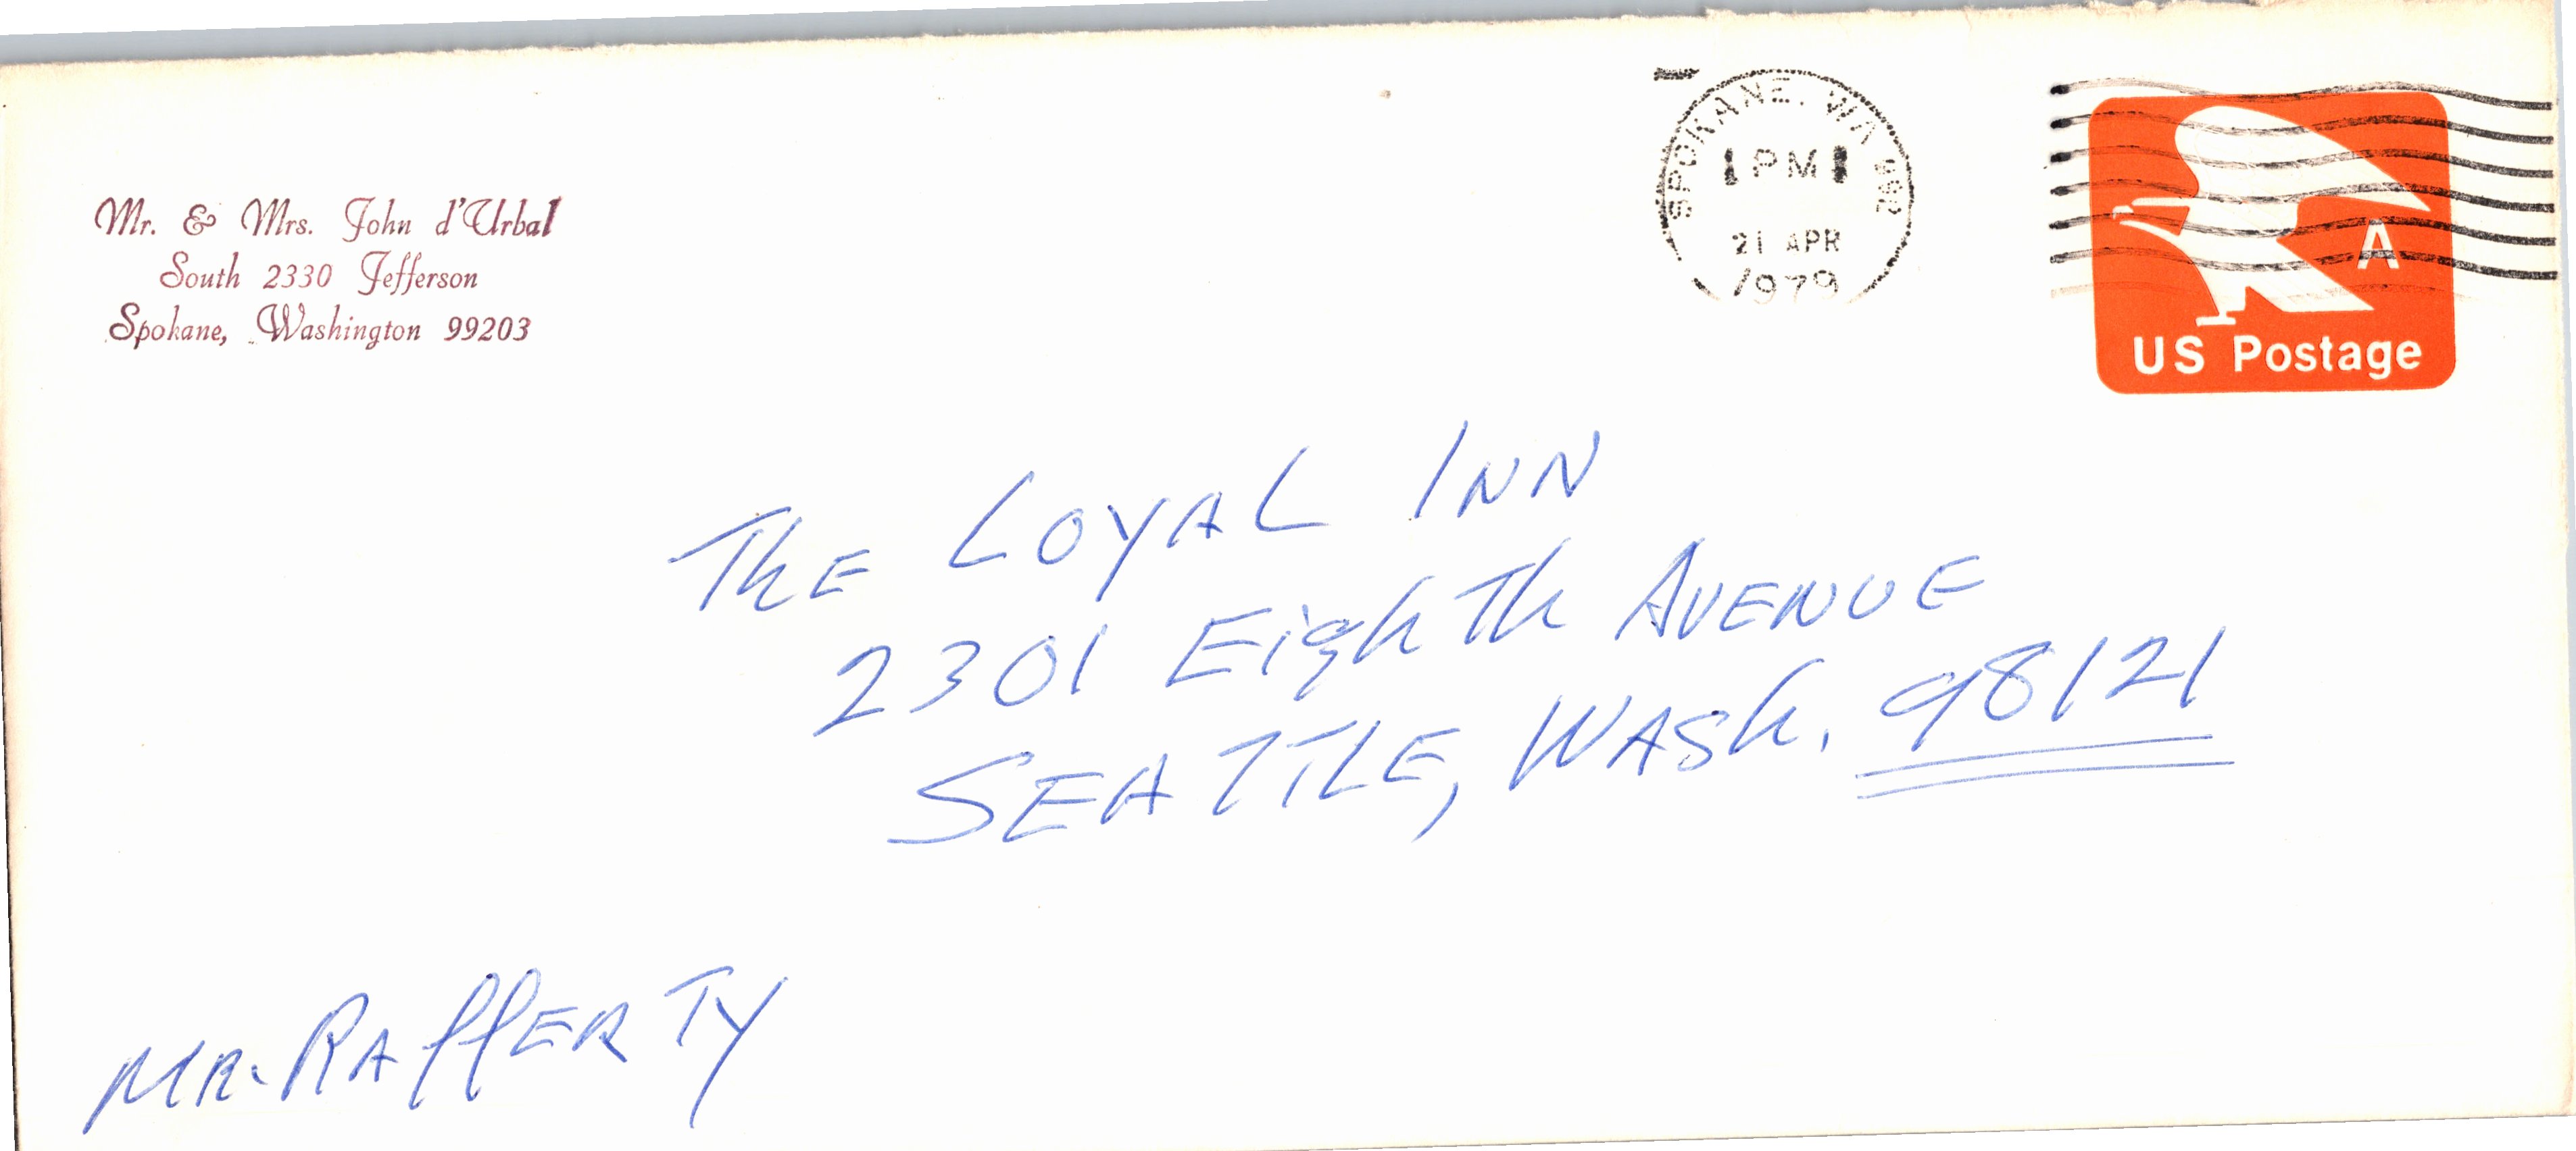 Mr. & Mrs. John d'Urbal
South 2330 Jefferson
Spokane, Washington 99203
SPOKANE, WA 992
PM
21 APR
1979
A
US Postage
The Loyal Inn
2301 Eighth Avenue
Seattle, Wash. 98121
Mr. Rafferty